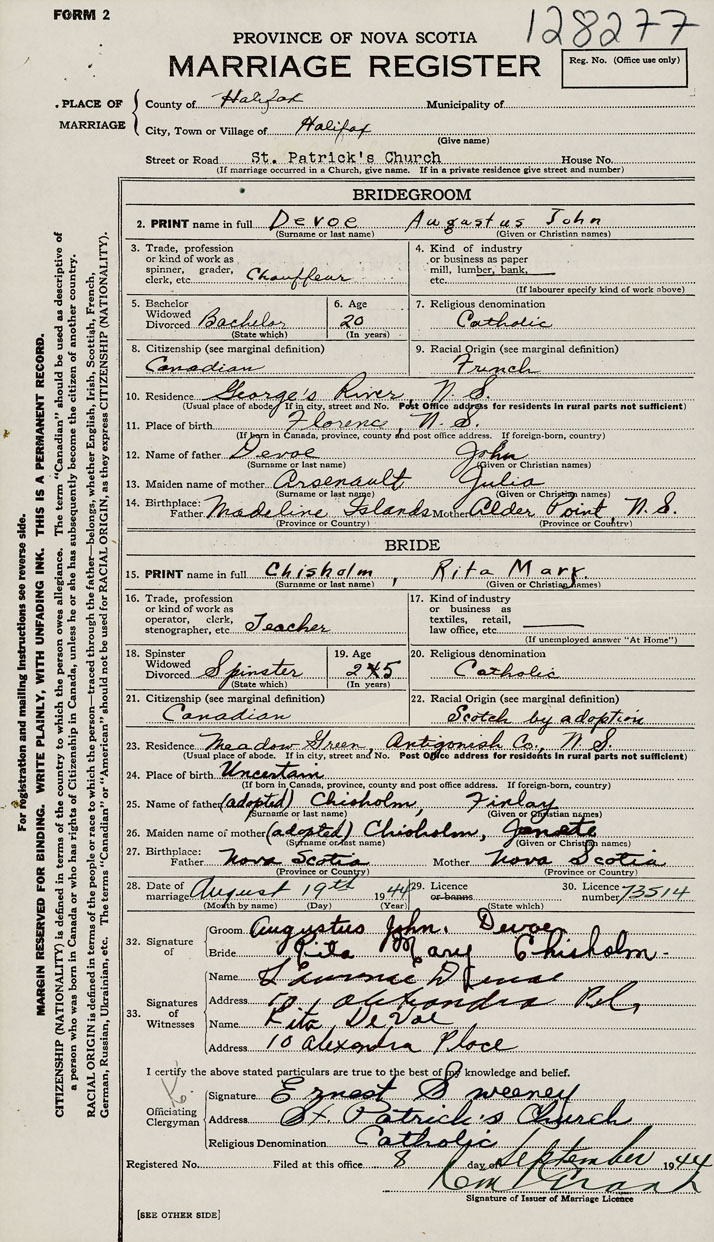 FORM 2
128277
PROVINCE OF NOVA SCOTIA
MARRIAGE REGISTER
Reg. No. (Office use only)
PLACE OF MARRIAGE
County of Halifax Municipality of
City, Town or Village of Halifax
(Give name)
Street or Road St. Patrick's Church House No.
(If marriage occurred in a Church, give name. If in a private residence give street and number)
BRIDEGROOM
2. PRINT name in full Devoe Augustus John
(Surname or last name) (Given or Christian names)
3. Trade, profession or kind of work as spinner, grader, clerk, etc. Chauffeur
4. Kind of industry or business as paper mill, lumber, bank, etc.
(If labourer specify kind of work above)
5. Bachelor Widowed Divorced Bachelor (State which)
6. Age 20 (In years)
7. Religious denomination Catholic
8. Citizenship (see marginal definition) Canadian
9. Racial Origin (see marginal definition) French
10. Residence George's River, N.S.
(Usual place of abode. If in city, street and No. Post Office address for residents in rural parts not sufficient)
11. Place of birth Florence, N.S.
(If born in Canada, province, county and post office address. If foreign-born, country)
12. Name of father Devoe John
(Surname or last name) (Given or Christian names)
13. Maiden name of mother Arsenault Julia
(Surname or last name) (Given or Christian names)
14. Birthplace: Father Madeline Islands Mother Alder Point, N.S.
(Province or Country) (Province or Country)
BRIDE
15. PRINT name in full Chisholm, Rita Mary.
(Surname or last name) (Given or Christian names)
16. Trade, profession or kind of work as operator, clerk, stenographer, etc Teacher
17. Kind of industry or business as textiles, retail, law office, etc.
(If unemployed answer "At Home")
18. Spinster Widowed Divorced Spinster (State which)
19. Age 245 (In years)
20. Religious denomination Catholic
21. Citizenship (see marginal definition) Canadian
22. Racial Origin (see marginal definition) Scotch by adoption
23. Residence Meadow Green, Antigonish Co., N.S.
(Usual place of abode. If in city, street and No. Post Office address for residents in rural parts not sufficient)
24. Place of birth Uncertain
(If born in Canada, province, county and post office address. If foreign-born, country)
25. Name of father (adopted) Chisholm, Finlay
(Surname or last name) (Given or Christian names)
26. Maiden name of mother (adopted) Chisholm, Janette
(Surname or last name) (Given or Christian names)
27. Birthplace: Father Nova Scotia Mother Nova Scotia
(Province or Country) (Province or Country)
28. Date of marriage August 19th 1944 29. Licence or banns 30. Licence number 73514
(Month by name) (Day) (Year) (State which)
32. Signature of
Groom Augustus John. Devoe
Bride Rita Mary Chisholm-
33. Signatures of Witnesses
Name
Address 10 Alexandra Pl,
Name Rita DeVoe
Address 10 Alexandra Place
I certify the above stated particulars are true to the best of my knowledge and belief.
Officiating Clergyman
Signature Ernest Sweeney
Address St. Patrick's Church
Religious Denomination Catholic
Registered No. Filed at this office 8 day of September 1944
Signature of Issuer of Marriage Licence
[SEE OTHER SIDE]
For registration and mailing instructions see reverse side.
MARGIN RESERVED FOR BINDING. WRITE PLAINLY, WITH UNFADING INK. THIS IS A PERMANENT RECORD.
CITIZENSHIP (NATIONALITY) is defined in terms of the country to which the person owes allegiance. The term "Canadian" should be used as descriptive of
a person who was born in Canada or who has rights of Citizenship in Canada, unless he or she has subsequently become the citizen of another country.
RACIAL ORIGIN is defined in terms of the people or race to which the person—traced through the father—belongs, whether English, Irish, Scottish, French,
German, Russian, Ukrainian, etc. The terms "Canadian" or "American" should not be used for RACIAL ORIGIN, as they express CITIZENSHIP (NATIONALITY).